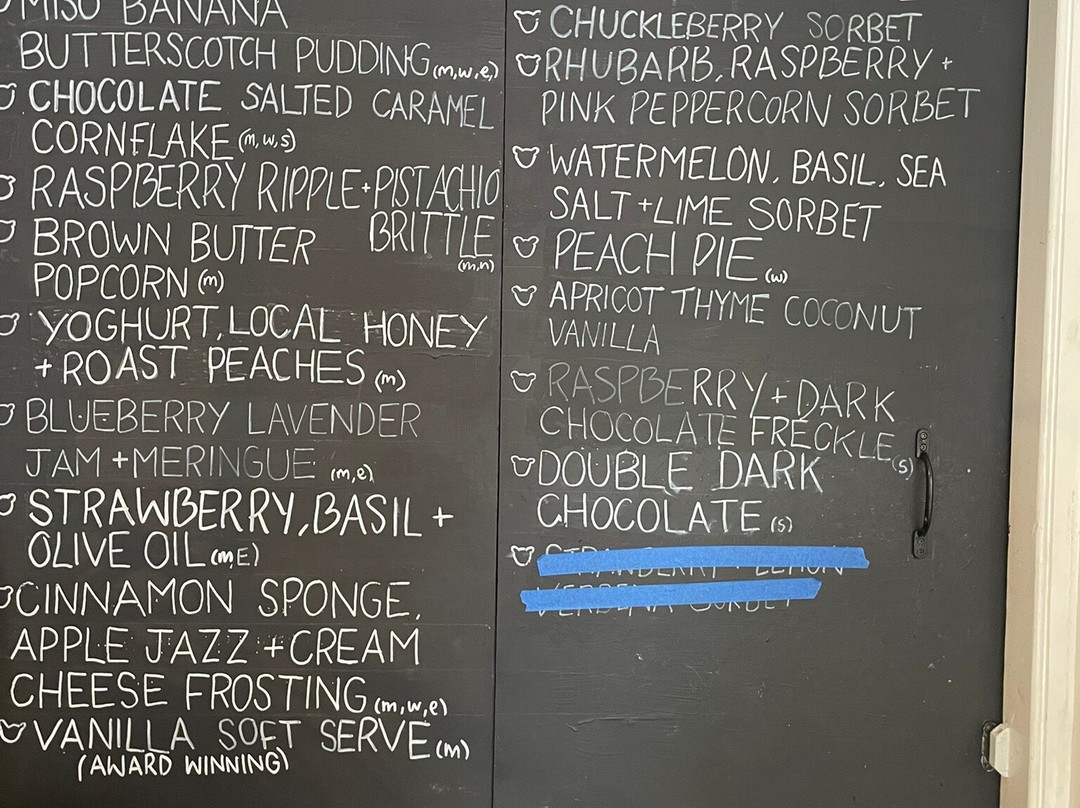 MISO BANANA
BUTTERSCOTCH PUDDING (m,w,e)
CHOCOLATE SALTED CARAMEL
CORNFLAKE (m,w,s)
RASPBERRY RIPPLE + PISTACHIO
BRITTLE
(m,n)
BROWN BUTTER
POPCORN (m)
YOGHURT, LOCAL HONEY
+ ROAST PEACHES (m)
BLUEBERRY LAVENDER
JAM + MERINGUE (m,e)
STRAWBERRY, BASIL +
OLIVE OIL (m,E)
CINNAMON SPONGE,
APPLE JAZZ + CREAM
CHEESE FROSTING (m,w,e)
VANILLA SOFT SERVE (m)
(AWARD WINNING)
CHUCKLEBERRY SORBET
RHUBARB, RASPBERRY +
PINK PEPPERCORN SORBET
WATERMELON, BASIL, SEA
SALT + LIME SORBET
PEACH PIE (w)
APRICOT THYME COCONUT
VANILLA
RASPBERRY + DARK
CHOCOLATE FRECKLE (s)
DOUBLE DARK
CHOCOLATE (s)
STRAWBERRY + LEMON
VERBENA SORBET